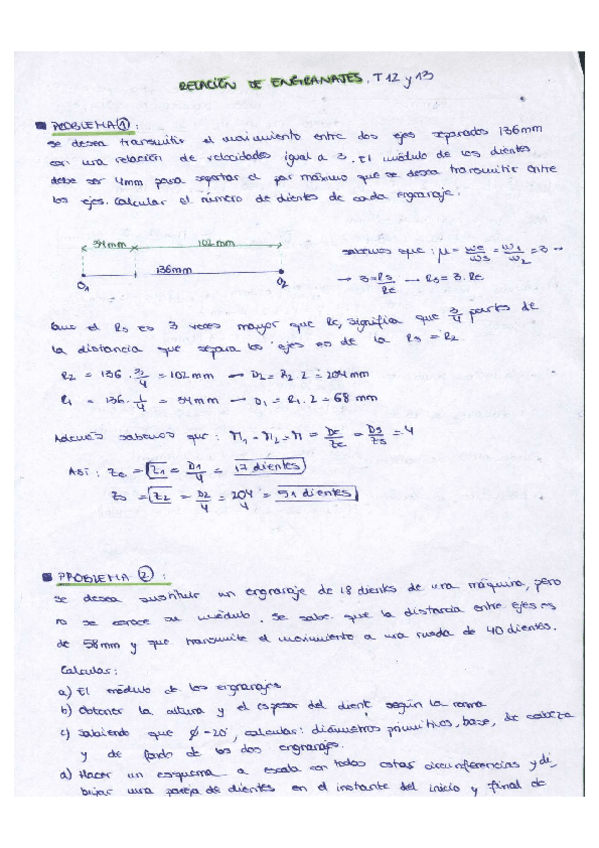 RELACIÓN DE ENGRANAJES. T12 y 13
PROBLEMA 1:
se desea transmitir el movimiento entre dos ejes separados 136mm
con una relación de velocidades igual a 3. El módulo de los dientes
debe ser 4mm para soportar el par máximo que se desea transmitir entre
los ejes. Calcular el número de dientes de cada engranaje.
34mm 102mm
136mm
O1 O2
sabemos que: μ = we/ws = w1/w2 = 3
→ 3 = Rs/Re → Rs = 3. Re
Que el Rs es 3 veces mayor que Re, significa que 3/4 partes de
la distancia que separa los ejes es de la Rs = R2
R2 = 136 . 3/4 = 102mm → D2 = R2 . 2 = 204mm
R1 = 136 . 1/4 = 34mm → D1 = R1 . 2 = 68 mm
Además sabemos que: m1 = m2 = m = De/Ze = Ds/Zs = 4
Así: Ze = Z1 = D1/4 = 17 dientes
Zs = Z2 = D2/4 = 204/4 = 51 dientes
PROBLEMA 2:
se desea sustituir un engranaje de 18 dientes de una máquina, pero
no se conoce su módulo. Se sabe que la distancia entre ejes es
de 58mm y que transmite el movimiento a una rueda de 40 dientes.
Calcular:
a) El módulo de los engranajes
b) Obtener la altura y el espesor del diente según la norma
c) Sabiendo que φ=20°, calcular: diámetros primitivos, base, de cabeza
y de fondo de los dos engranajes.
d) Hacer un esquema a escala con todas estas circunferencias y di_
bujar una pareja de dientes en el instante del inicio y final de